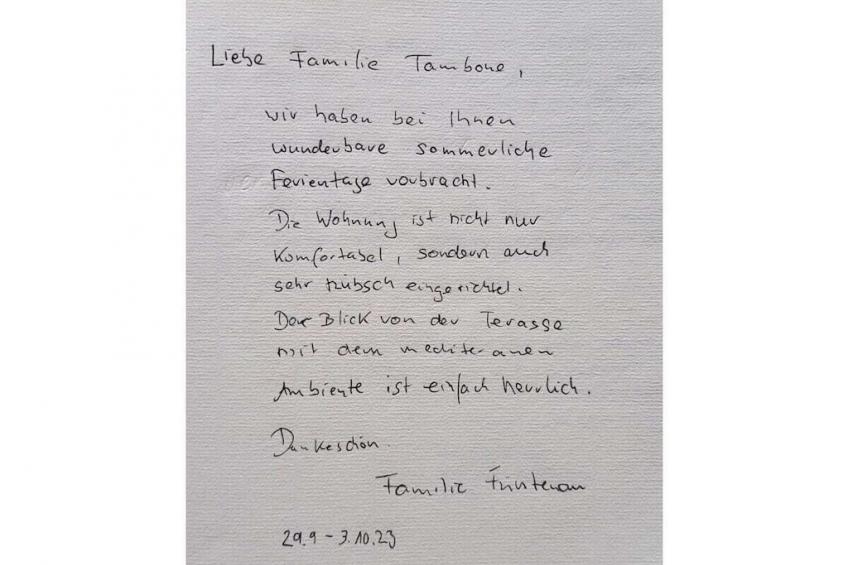 Liebe Familie Tambone,
wir haben bei Ihnen
wunderbare sommerliche
Ferientage verbracht.
Die Wohnung ist nicht nur
komfortabel, sondern auch
sehr hübsch eingerichtet.
Der Blick von der Terasse
mit dem mediteranen
Ambiente ist einfach herrlich.
Dankeschön.
Familie
29.9 - 3.10.23